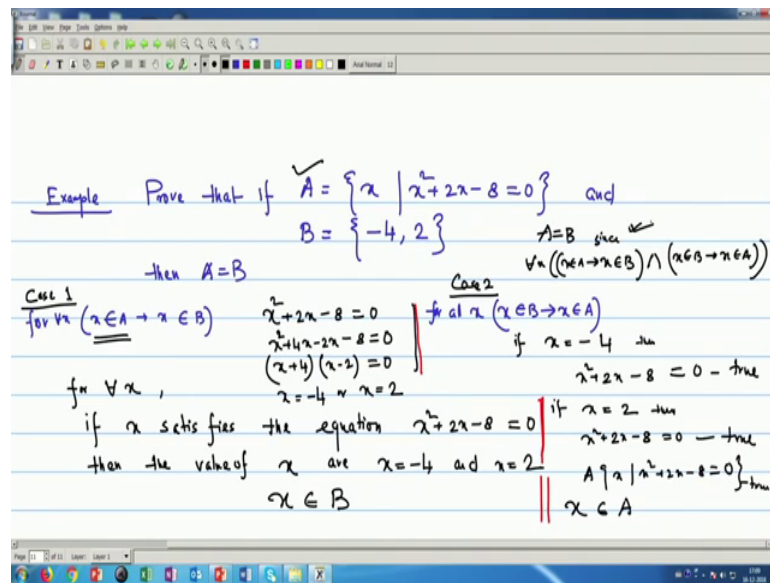 Journal
File Edit View Page Tools Options Help
Arial Normal 12
Example Prove that if A = {x | x²+2x-8 = 0} and
B = {-4, 2}
then A=B
A=B since
∀x((x∈A→x∈B) ∧ (x∈B→x∈A))
Case 1
for ∀x (x∈A → x∈B)
x²+2x-8 = 0
x²+4x-2x-8 = 0
(x+4)(x-2) = 0
x=-4 or x=2
for ∀x,
if x satisfies the equation x²+2x-8 = 0
then the value of x are x=-4 and x=2
x ∈ B
Case 2
for al x (x∈B→x∈A)
if x=-4 then
x²+2x-8 = 0 - true
if x=2 then
x²+2x-8=0 - true
A{x | x²+2x-8=0} - true
x ∈ A
Page 11 of 11 Layer: Layer 1